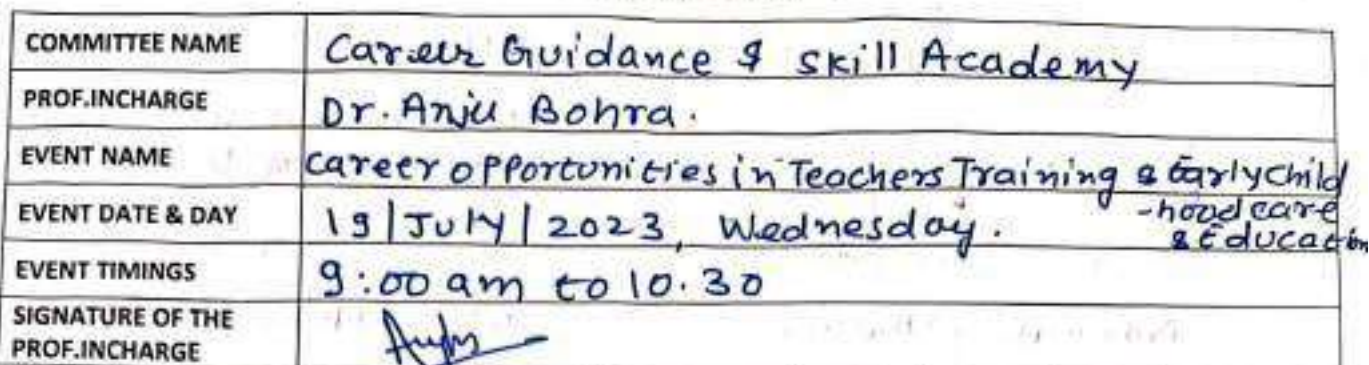 COMMITTEE NAME Career Guidance & skill Academy
PROF.INCHARGE Dr. Anju Bohra.
EVENT NAME career opportunities in Teachers Training & Early child
-hood care
& Education
EVENT DATE & DAY 19/July/2023, Wednesday.
EVENT TIMINGS 9:00 am to 10.30
SIGNATURE OF THE
PROF.INCHARGE